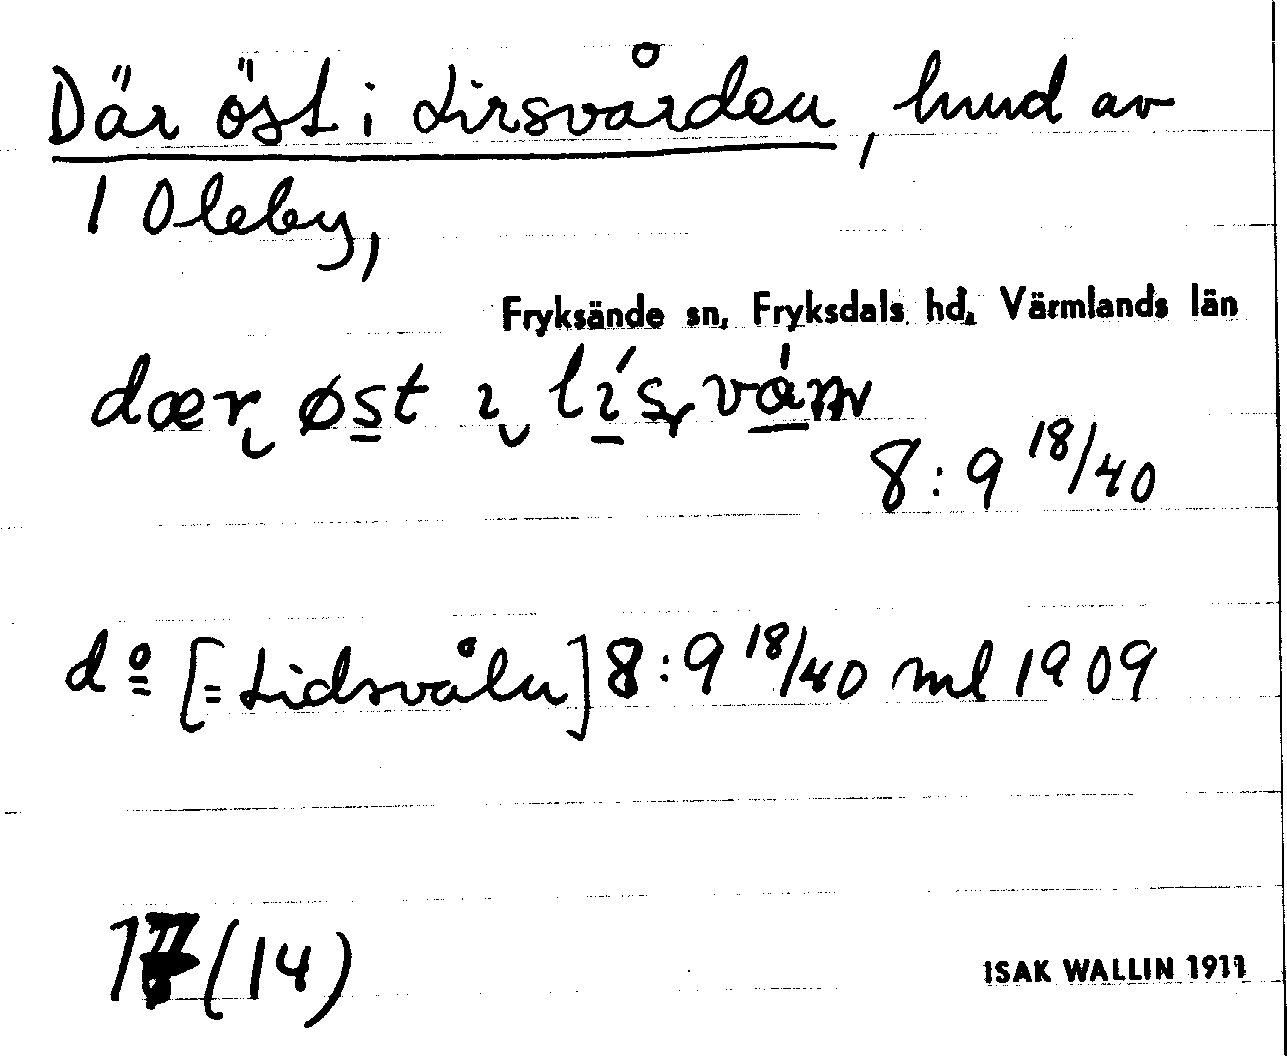 Där öst i Lirsvården, hmd av
1 Oleby,
Fryksände sn, Fryksdals hd, Värmlands län
dær øst ı lı́s, ván
8:9 18/40
do [= Lidsvåln] 8:9 18/40 ml 1909
17 (14)
ISAK WALLIN 1911